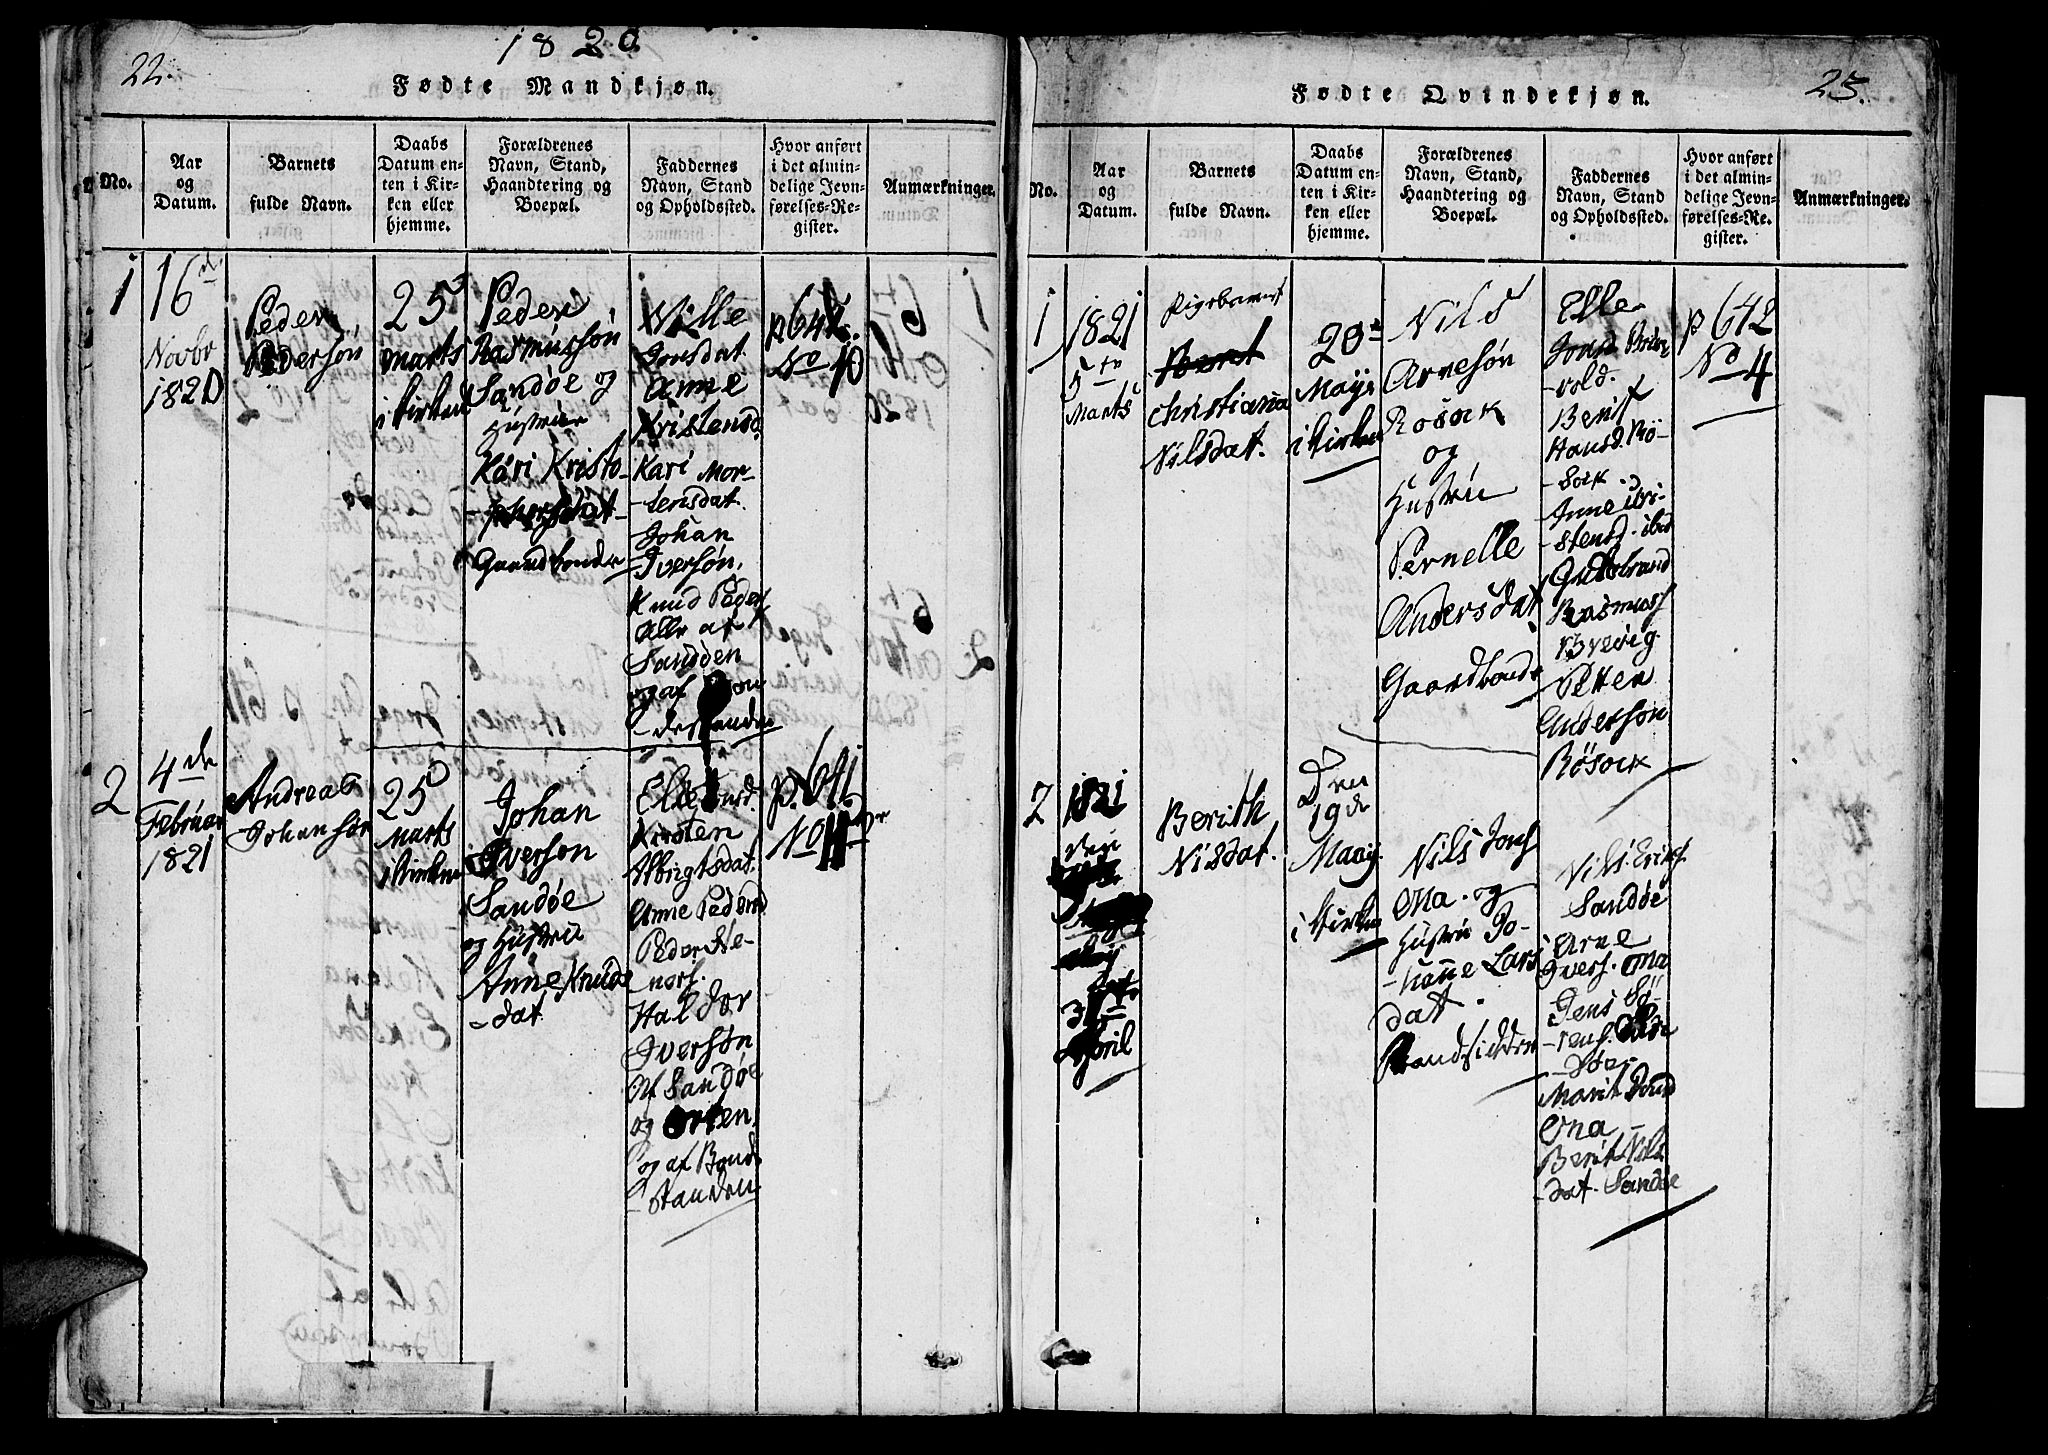 22.
1820.
Fødte Mandkjøn.
No.
Aar
og
Datum.
Barnets
fulde Navn.
Daabs
Datum en-
ten i Kir-
ken eller
hjemme.
Forældrenes
Navn, Stand,
Haandtering og
Boepæl.
Faddernes
Navn, Stand
og Opholdssted.
Hvor anført
i det almin-
delige Jevn-
førelses-Re-
gister.
Anmærkninger.
1
16de
Novbr
1820
Peder
Pederson
25
Marts
i Kirken
Peder
Rasmusson
Sandøe og
Hustrue
Kari Kristo-
Gaardbonde
Jonsdat
Anne
Kristensd.
Kari Mor-
tensdat.
Johan
Iverson.
Knud Peders
Alle af
Sandøen
og af Bon-
destanden
p. 642.
No 10
2
4de
Februar
1821
Andreas
Johanson
25
Marts
i Kirken
Johan
Iverson
Sandøe
og Hustrue
Anne Knuds-
-dat
Kirsten
Anne Pedersd
Peder Ste-
-ners.
Haldor
Iverson
Af Sandøe
og Orten.
og af Bonde-
-standen
p. 641
No 11
23.
Fødte Qvindekjøn.
No.
Aar
og
Datum.
Barnets
fulde Navn.
Daabs
Datum en-
ten i Kir-
ken eller
hjemme.
Forældrenes
Navn, Stand,
Haandtering og
Boepæl.
Faddernes
Navn, Stand
og Opholdssted.
Hvor anført
i det almin-
delige Jevn-
førelses-Re-
gister.
Anmærkninger.
1
1821
5te
Marts
Pigebarnet
Beret
Christiana
Nilsdat.
20de
Maji
i Kirken
Nils
Arneson
Rosok
og
Hustru
Pernelle
Andersdat
Gaardbonde
Elle
-vold.
Berit
Hansd. Rø-
-sok.
Anne Kri-
-stensd. ibid
Guttebrand
Rasmuss
Brevig
Petter
Anderson
Røsok
p 642
No 4
2
1821
den
April
Berith
Nilsdat.
Den
19de
Maij.
i Kirken
Nils Jons
Ona. og
Hustru Jo-
-hanne Lars
dat.
Strandsidder
Nils Eriks.
Sandøe
Arne
Ivers. Ona
Jens Sø-
-rens.
Marit
Ona
Berit Nils
-dat. Sandøe